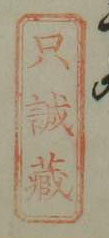 只誠藏